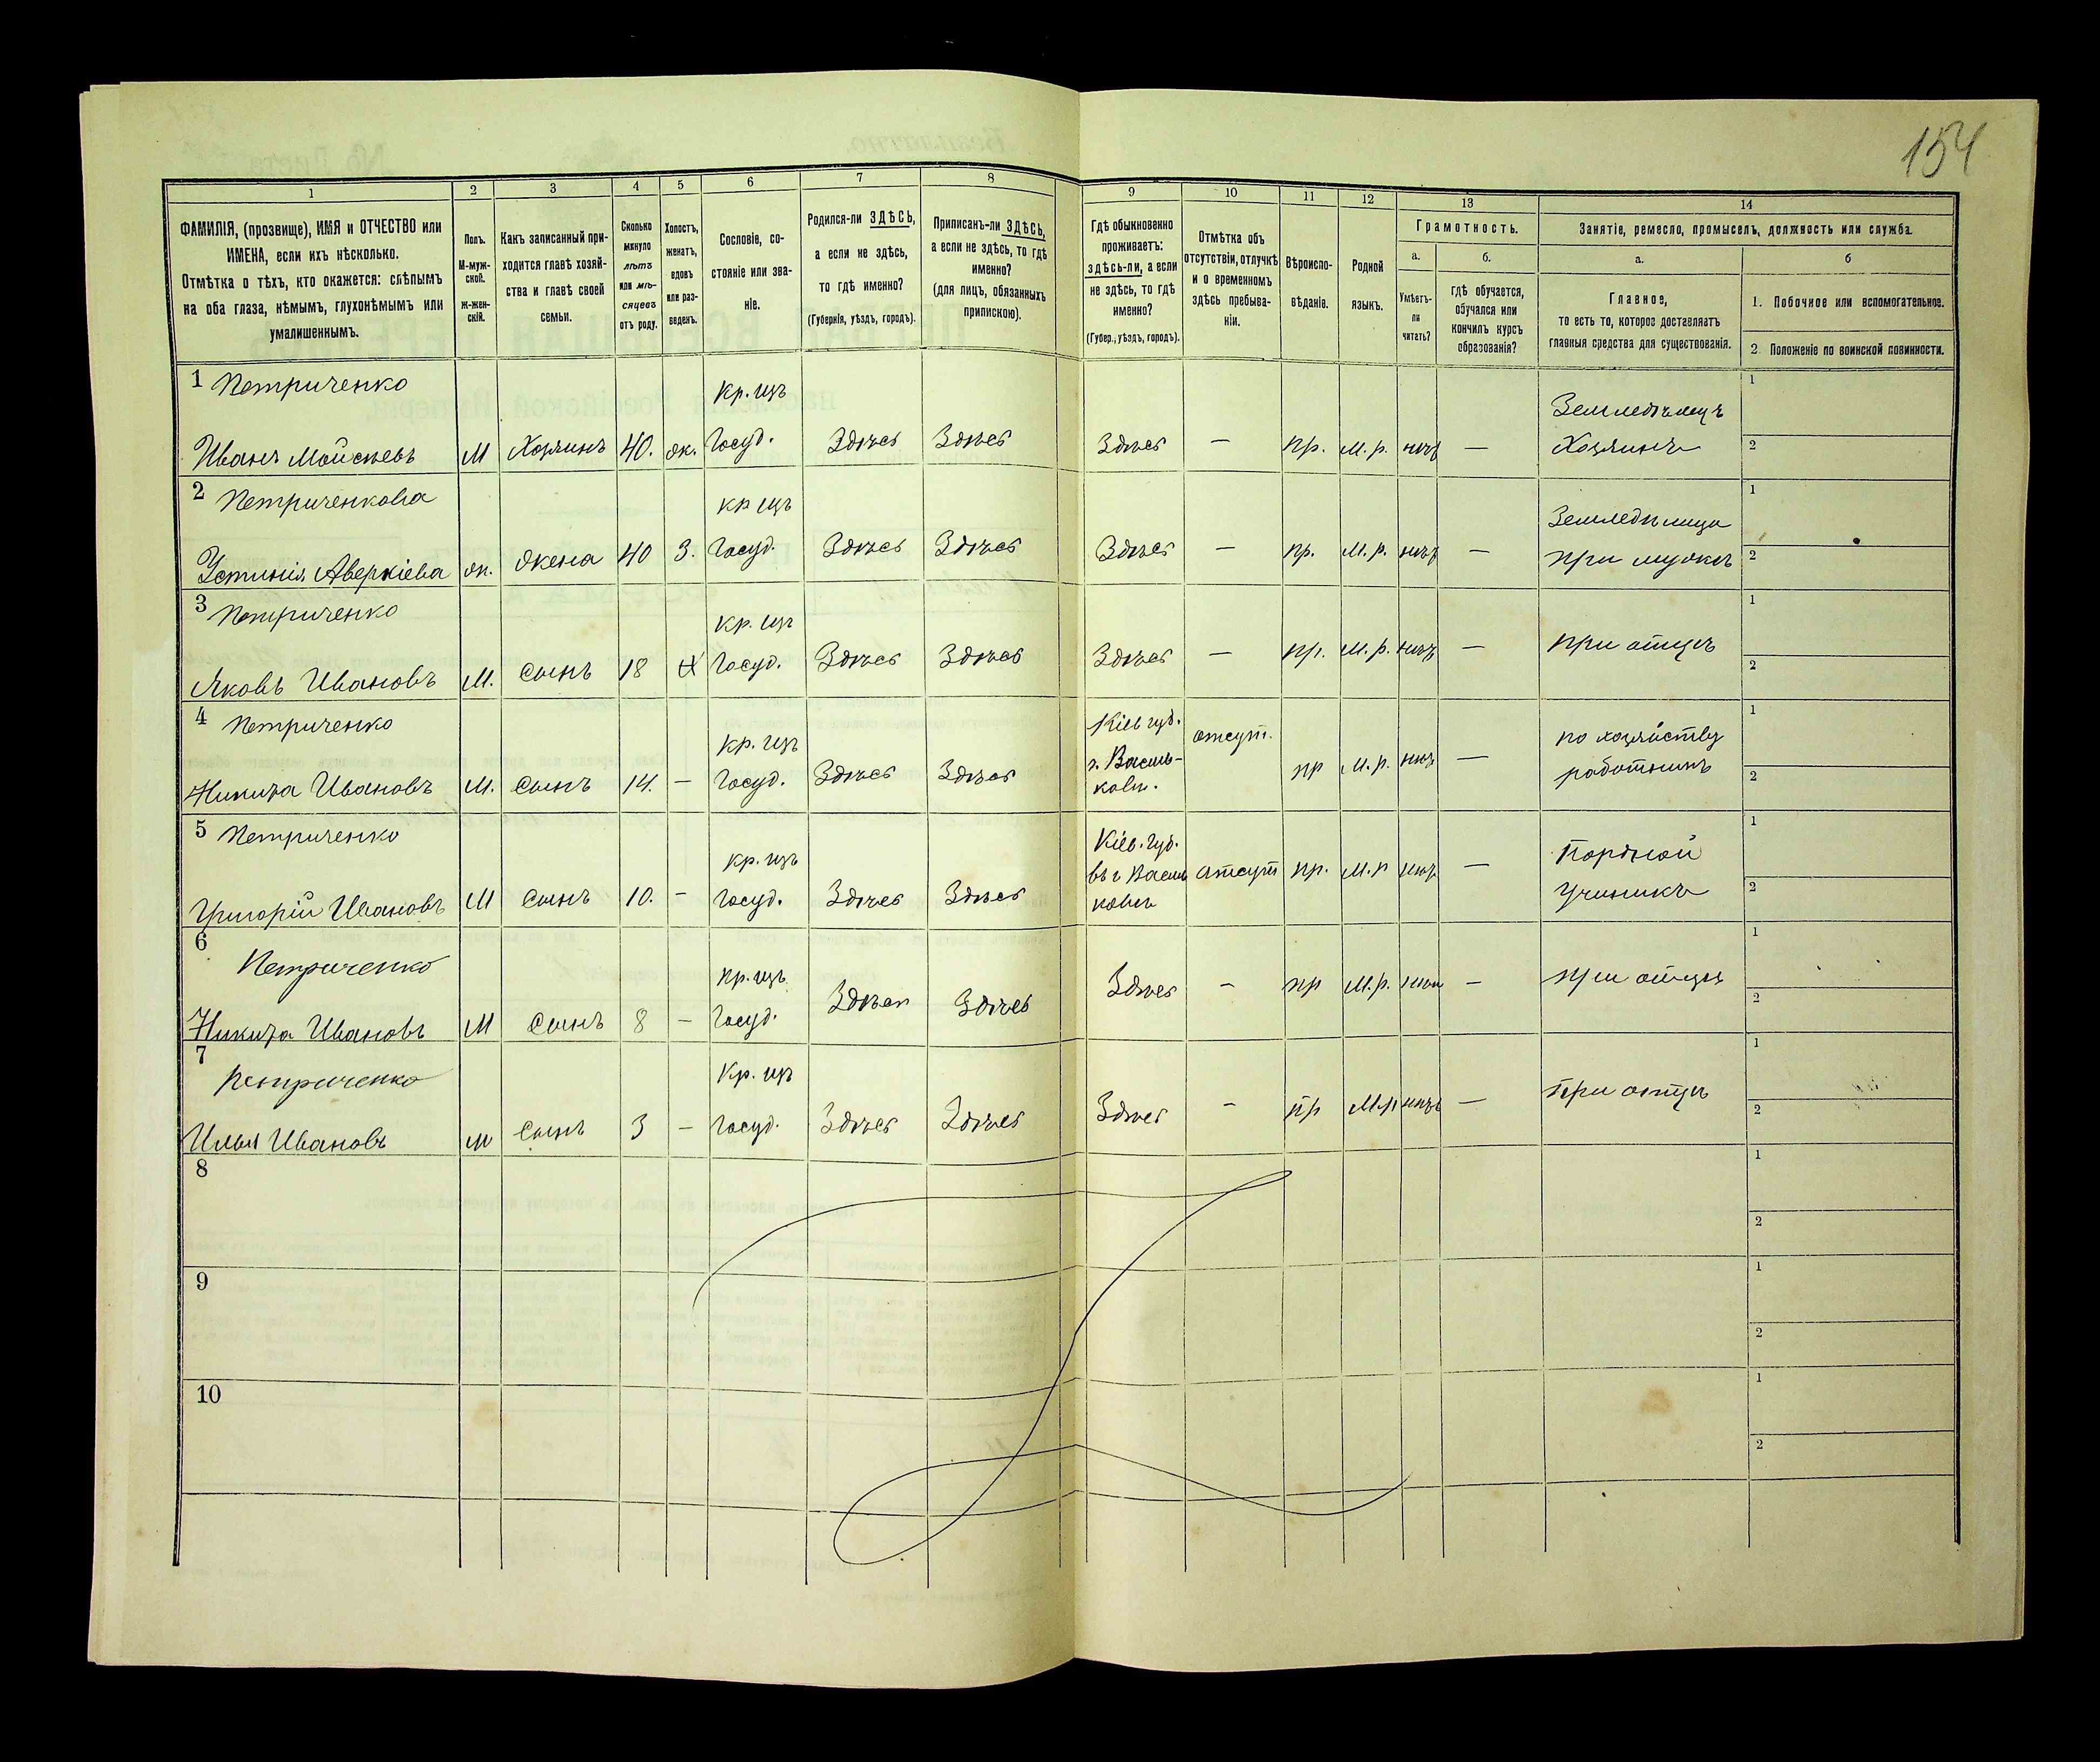 154
1
2
3
4
5
6
7
8
9
10
11
12
13
14
ФАМИЛІЯ, (прозвище), ИМЯ и ОТЧЕСТВО или
ИМЕНА, если ихъ нѣсколько.
Отмѣтка о тѣхъ, кто окажется: слѣпымъ
на оба глаза, нѣмымъ, глухонѣмымъ или
умалишеннымъ.
Полъ.
М-муж-
ской.
ж-жен-
скій.
Какъ записанный при-
ходится главѣ хозяй-
ства и главѣ своей
семьи.
Сколько
минуло
лѣтъ
или мѣ-
сяцевъ
отъ роду.
Холостъ,
женатъ,
вдовъ
или раз-
веденъ.
Сословіе, со-
стояніе или зва-
ніе.
Родился-ли ЗДѢСЬ,
а если не здѣсь,
то гдѣ именно?
(Губернія, уѣздъ, городъ).
Приписанъ-ли ЗДѢСЬ,
а если не здѣсь, то гдѣ
именно?
(для лицъ, обязанныхъ
припискою).
Гдѣ обыкновенно
проживаетъ:
здѣсь-ли, а если
не здѣсь, то гдѣ
именно?
(Губер., уѣздъ, городъ).
Отмѣтка объ
отсутствіи, отлучкѣ
и о временномъ
здѣсь пребыва-
ніи.
Вѣроиспо-
вѣданіе.
Родной
языкъ.
Грамотность.
а.
Умѣетъ-
ли
читать?
б.
гдѣ обучается,
обучался или
кончилъ курсъ
образованія?
Занятіе, ремесло, промыселъ, должность или служба.
а.
Главное,
то есть то, которое доставляетъ
главныя средства для существованія.
б
1. Побочное или вспомогательное.
2. Положеніе по воинской повинности.
1 Петриченко
Иванъ Мойсѣевъ
М
Хозяинъ
40.
ж.
Кр. изъ
Госуд.
Здѣсь
Здѣсь
Здѣсь
—
пр.
М. р.
—
Хозяинъ
1
2
2 Петриченкова
Устинія Аверкіева
ж.
жена
40
З.
кр изъ
Госуд.
Здѣсь
Здѣсь
Здѣсь
—
пр.
М. р.
—
при мужѣ
1
2
3 Петриченко
Яковъ Ивановъ
М.
Сынъ
18
Х
Кр. изъ
Госуд.
Здѣсь
Здѣсь
Здѣсь
—
пр.
М. р.
—
при отцѣ
1
2
4 Петриченко
Никита Ивановъ
М.
Сынъ
14.
—
кр. изъ
Госуд.
Здѣсь
Здѣсь
Кіев губ.
г. Василь-
ковъ.
отсут.
пр
М. р.
—
по хозяйству
работникъ
1
2
5 Петриченко
Григорій Ивановъ
М
Сынъ
10.
-
кр. изъ
Госуд.
Здѣсь
Здѣсь
Кіев. губ.
въ г Василь
ковѣ
отсут
пр.
М. р
—
Портной
Ученикъ
1
2
6 Петриченко
Никита Ивановъ
М
Сынъ
8
—
кр. изъ
Госуд.
Здѣсь
Здѣсь
Здѣсь
-
пр
М. р.
—
при отцѣ
1
2
7 Петриченко
Илья Ивановъ
м
Сынъ
3
—
Кр. изъ
Госуд.
Здѣсь
Здѣсь
Здѣсь
-
пр
М. р
—
при отцѣ
1
2
8
1
2
9
1
2
10
1
2